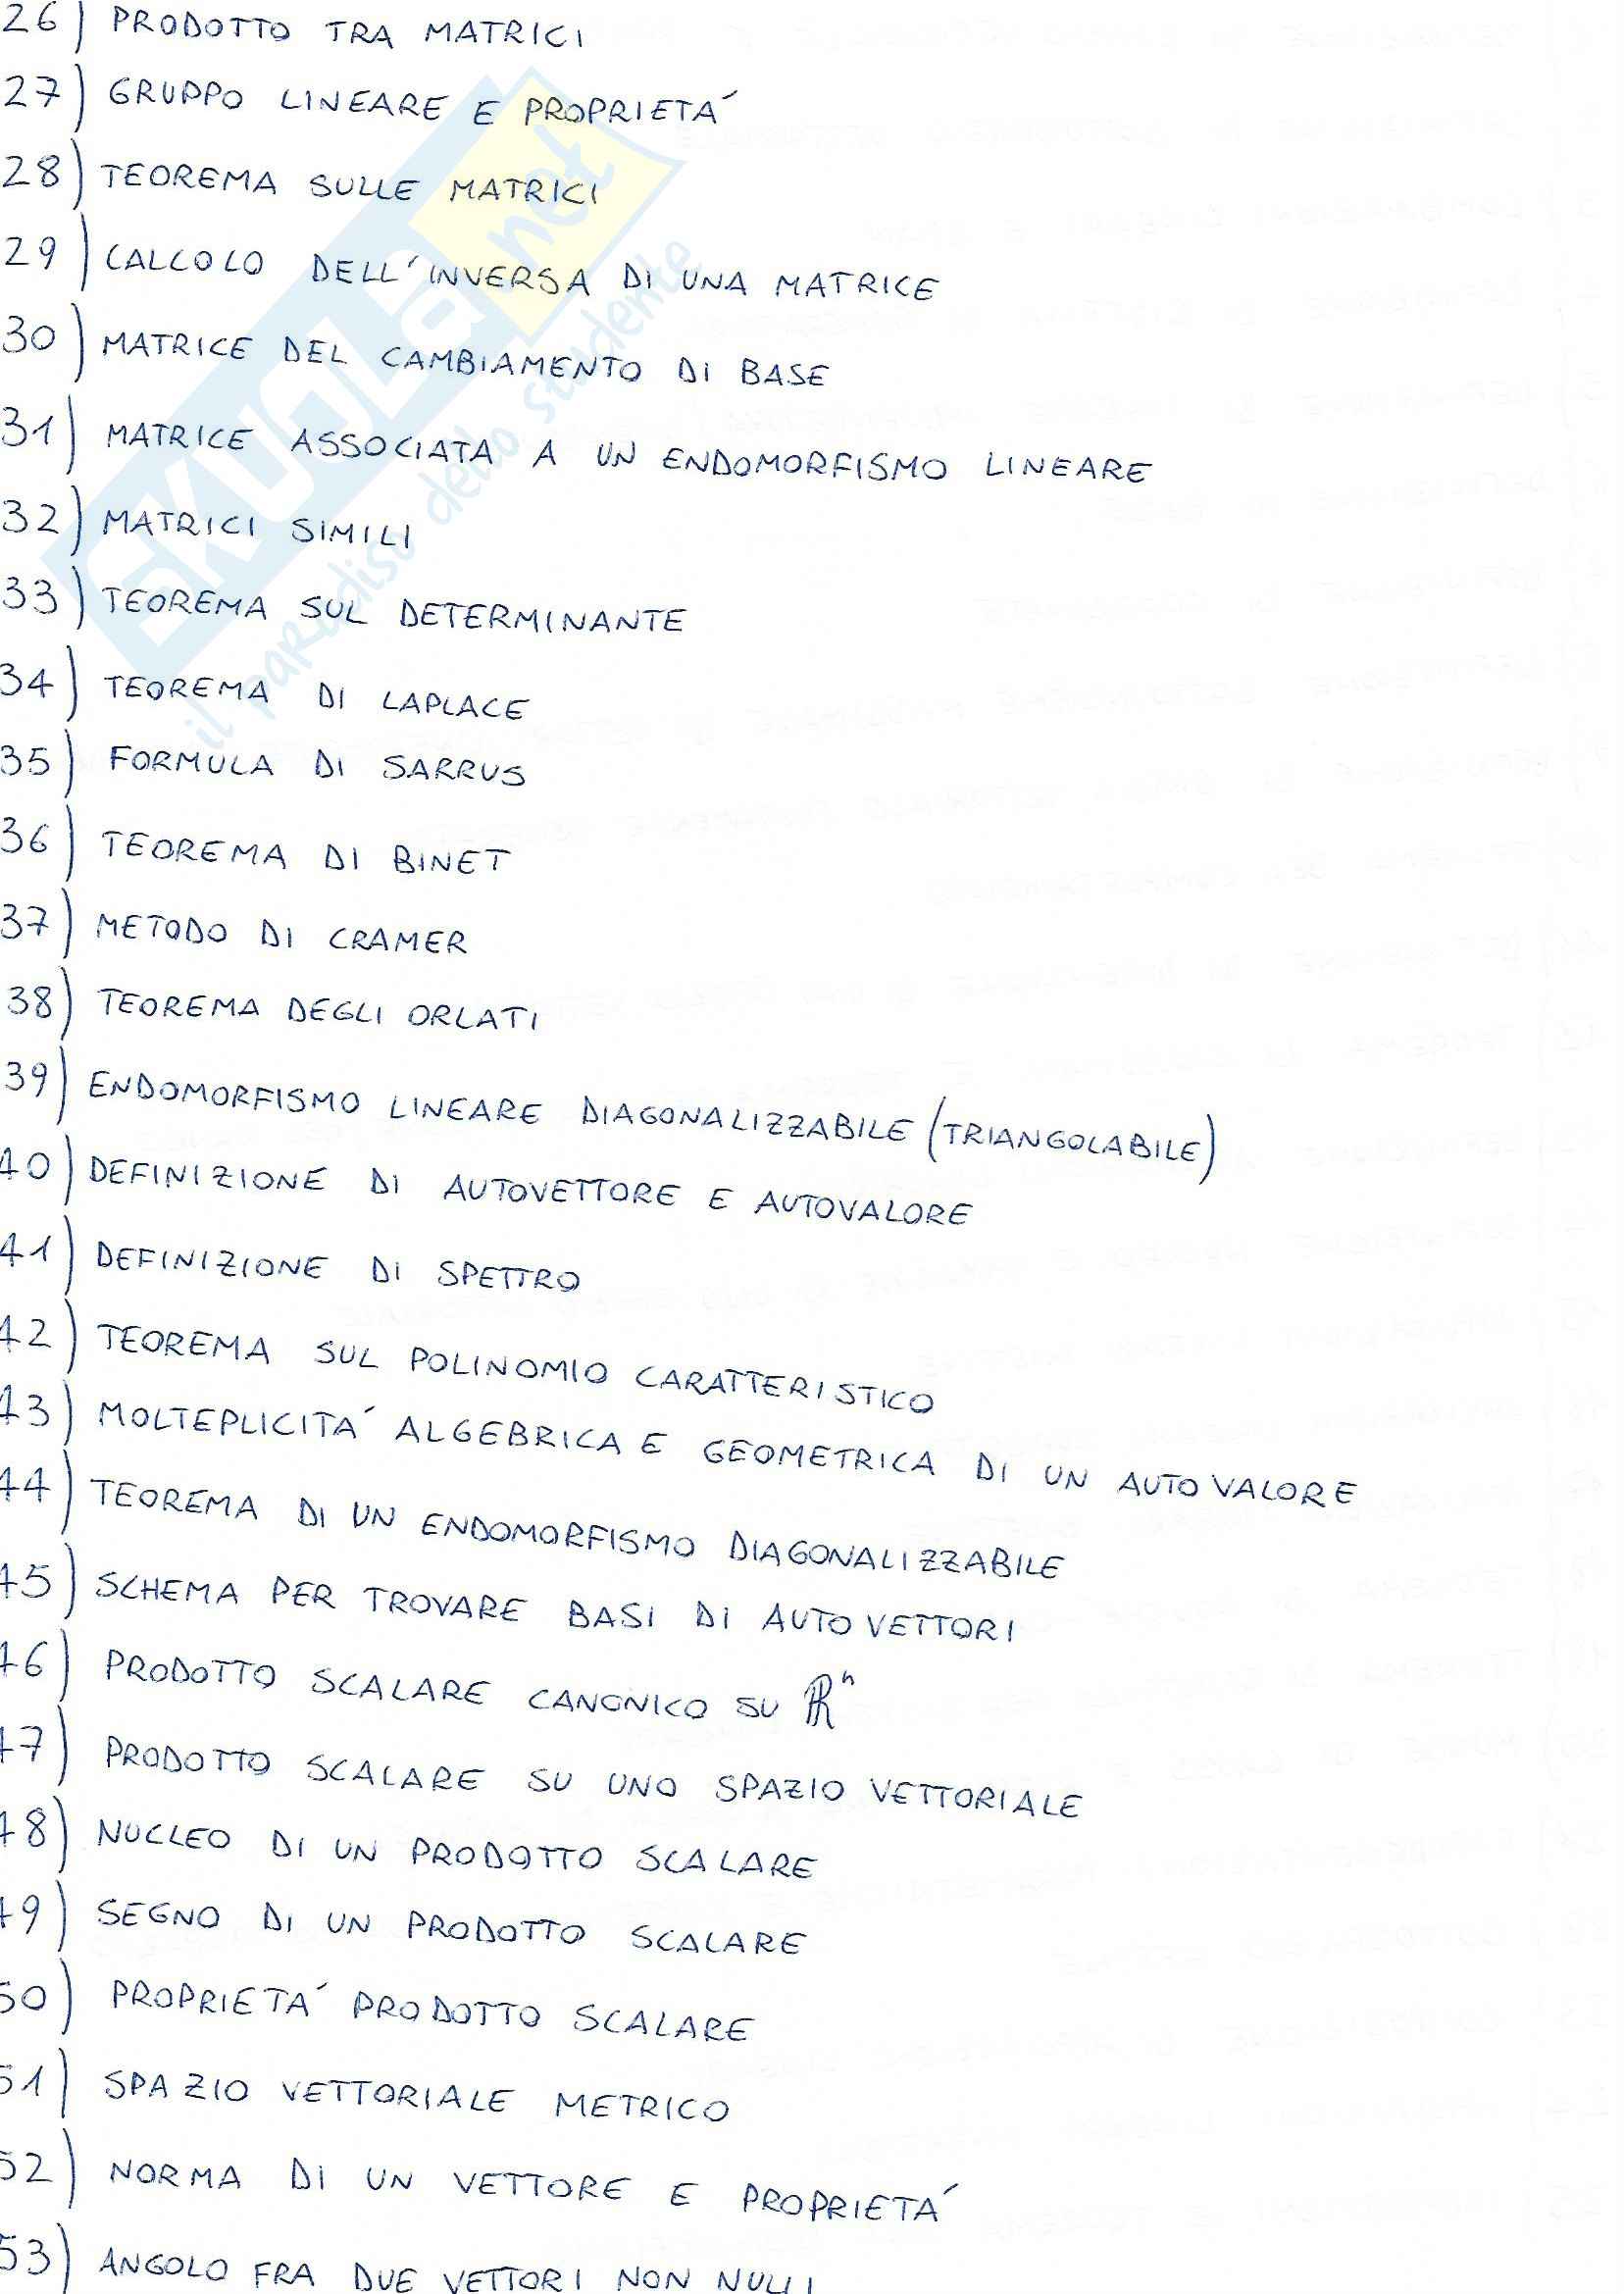 26) PRODOTTO TRA MATRICI
27) GRUPPO LINEARE E PROPRIETÁ
28) TEOREMA SULLE MATRICI
29) CALCOLO DELL'INVERSA DI UNA MATRICE
30) MATRICE DEL CAMBIAMENTO DI BASE
31) MATRICE ASSOCIATA A UN ENDOMORFISMO LINEARE
32) MATRICI SIMILI
33) TEOREMA SUL DETERMINANTE
34) TEOREMA DI LAPLACE
35) FORMULA DI SARRUS
36) TEOREMA DI BINET
37) METODO DI CRAMER
38) TEOREMA DEGLI ORLATI
39) ENDOMORFISMO LINEARE DIAGONALIZZABILE (TRIANGOLABILE)
40) DEFINIZIONE DI AUTOVETTORE E AUTOVALORE
41) DEFINIZIONE DI SPETTRO
42) TEOREMA SUL POLINOMIO CARATTERISTICO
43) MOLTEPLICITÁ ALGEBRICA E GEOMETRICA DI UN AUTOVALORE
44) TEOREMA DI UN ENDOMORFISMO DIAGONALIZZABILE
45) SCHEMA PER TROVARE BASI DI AUTOVETTORI
46) PRODOTTO SCALARE CANONICO SU ℝⁿ
47) PRODOTTO SCALARE SU UNO SPAZIO VETTORIALE
48) NUCLEO DI UN PRODOTTO SCALARE
49) SEGNO DI UN PRODOTTO SCALARE
50) PROPRIETÁ PRODOTTO SCALARE
51) SPAZIO VETTORIALE METRICO
52) NORMA DI UN VETTORE E PROPRIETÁ
53) ANGOLO FRA DUE VETTORI NON NULLI
SKUOLA.net
il paradiso dello studente